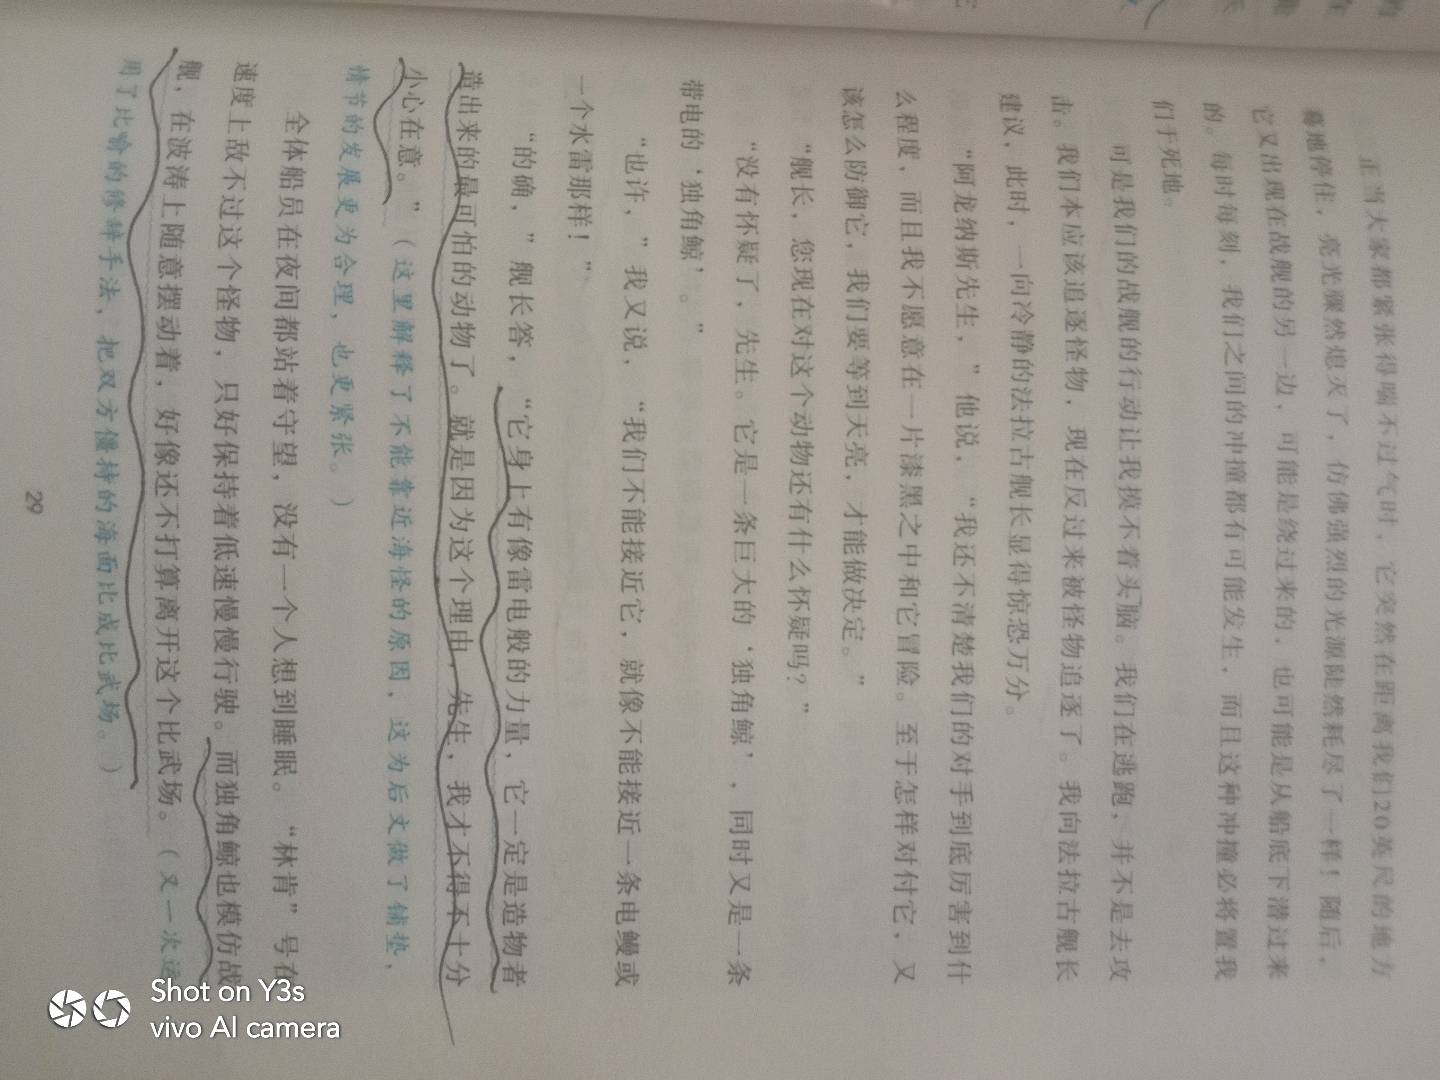 正当大家都紧张得喘不过气时，它突然在距离我们20英尺的地方
蓦地停住，亮光骤然熄灭了，仿佛强烈的光源陡然耗尽了一样！随后，
它又出现在战舰的另一边，可能是绕过来的，也可能是从船底下潜过来
的。每时每刻，我们之间的冲撞都有可能发生，而且这种冲撞必将置我
们于死地。
可是我们的战舰的行动让我摸不着头脑。我们在逃跑，并不是去攻
击。我们本应该追逐怪物，现在反过来被怪物追逐了。我向法拉古舰长
建议，此时，一向冷静的法拉古舰长显得惊恐万分。
“阿龙纳斯先生，”他说，“我还不清楚我们的对手到底厉害到什
么程度，而且我不愿意在一片漆黑之中和它冒险。至于怎样对付它，又
该怎么防御它，我们要等到天亮，才能做决定。”
“舰长，您现在对这个动物还有什么怀疑吗？”
“没有怀疑了，先生。它是一条巨大的‘独角鲸’，同时又是一条
带电的‘独角鲸’。”
“也许，”我又说，“我们不能接近它，就像不能接近一条电鳗或
一个水雷那样！”
“的确，”舰长答，“它身上有像雷电般的力量，它一定是造物者
造出来的最可怕的动物了。就是因为这个理由，先生，我才不得不十分
小心在意。”（这里解释了不能靠近海怪的原因，这为后文做了铺垫，
情节的发展更为合理，也更紧张。）
全体船员在夜间都站着守望，没有一个人想到睡眠。“林肯”号在
速度上敌不过这个怪物，只好保持着低速慢慢行驶。而独角鲸也模仿战
舰，在波涛上随意摆动着，好像还不打算离开这个比武场。（又一次运
用了比喻的修辞手法，把双方僵持的海面比成比武场。）
29
Shot on Y3s
vivo AI camera